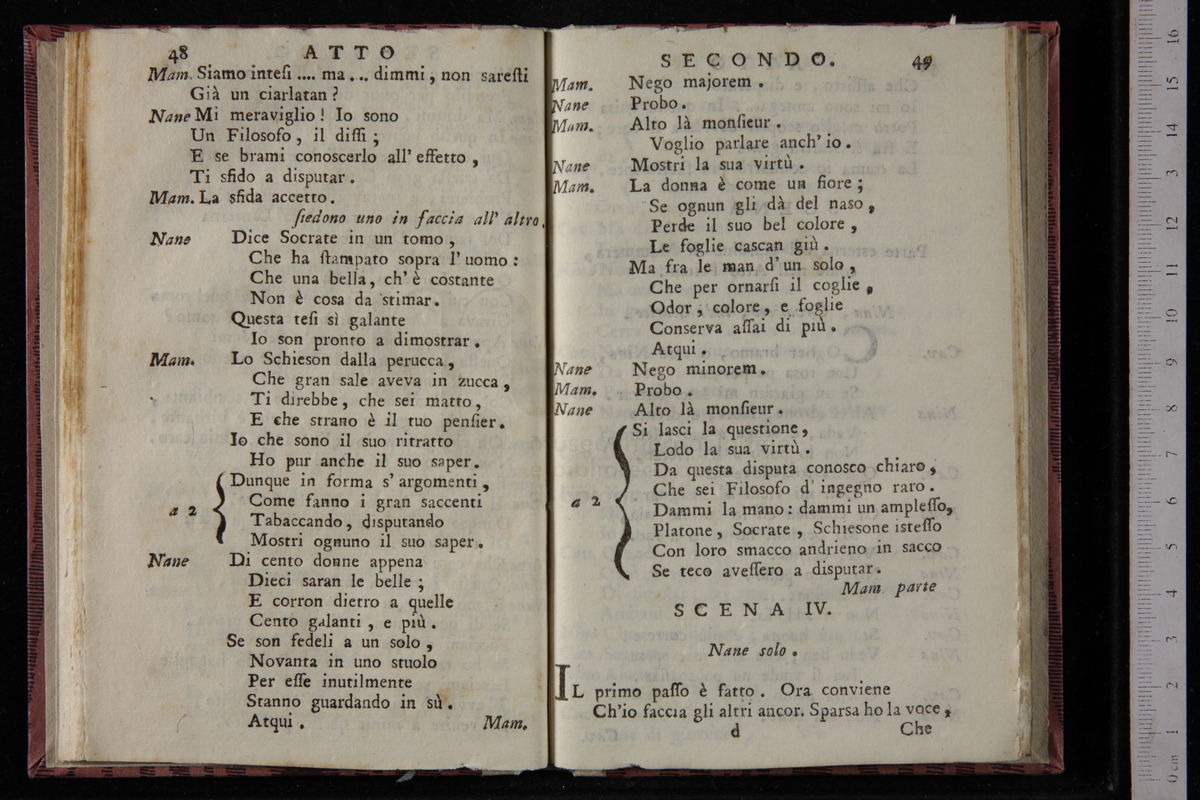 48 ATTO
Mam. Siamo inteſi .... ma ... dimmi, non sareſti
Già un ciarlatan?
Nane Mi meraviglio! Io sono
Un Filosofo, il diſſi;
E se brami conoscerlo all' effetto,
Ti sfido a disputar.
Mam. La sfida accetto.
ſiedono uno in faccia all' altro.
Nane Dice Socrate in un tomo,
Che ha ſtampato sopra l'uomo:
Che una bella, ch' è costante
Non è cosa da stimar.
Questa teſi sì galante
Io son pronto a dimostrar.
Mam. Lo Schieson dalla perucca,
Che gran sale aveva in zucca,
Ti direbbe, che sei matto,
E che strano è il tuo penſier.
Io che sono il suo ritratto
Ho pur anche il suo saper.
a 2 Dunque in forma s' argomenti,
Come fanno i gran saccenti
Tabaccando, disputando
Mostri ognuno il suo saper.
Nane Di cento donne appena
Dieci saran le belle;
E corron dietro a quelle
Cento galanti, e più.
Se son fedeli a un solo,
Novanta in uno stuolo
Per eſſe inutilmente
Stanno guardando in sù.
Atqui. Mam.
SECONDO. 49
Mam. Nego majorem.
Nane Probo.
Mam. Alto là monſieur.
Voglio parlare anch' io.
Nane Mostri la sua virtù.
Mam. La donna è come un fiore;
Se ognun gli dà del naso,
Perde il suo bel colore,
Le foglie cascan giù.
Ma fra le man d' un solo,
Che per ornarſi il coglie,
Odor, colore, e foglie
Conserva aſſai di più.
Atqui.
Nane Nego minorem.
Mam. Probo.
Nane Alto là monſieur.
a 2 Si lasci la questione,
Lodo la sua virtù.
Da questa disputa conosco chiaro,
Che sei Filosofo d' ingegno raro.
Dammi la mano: dammi un ampleſſo,
Platone, Socrate, Schiesone isteſſo
Con loro smacco andrieno in sacco
Se teco aveſſero a disputar.
Mam. parte
SCENA IV.
Nane solo.
IL primo paſſo è fatto. Ora conviene
Ch'io faccia gli altri ancor. Sparsa ho la voce,
d Che